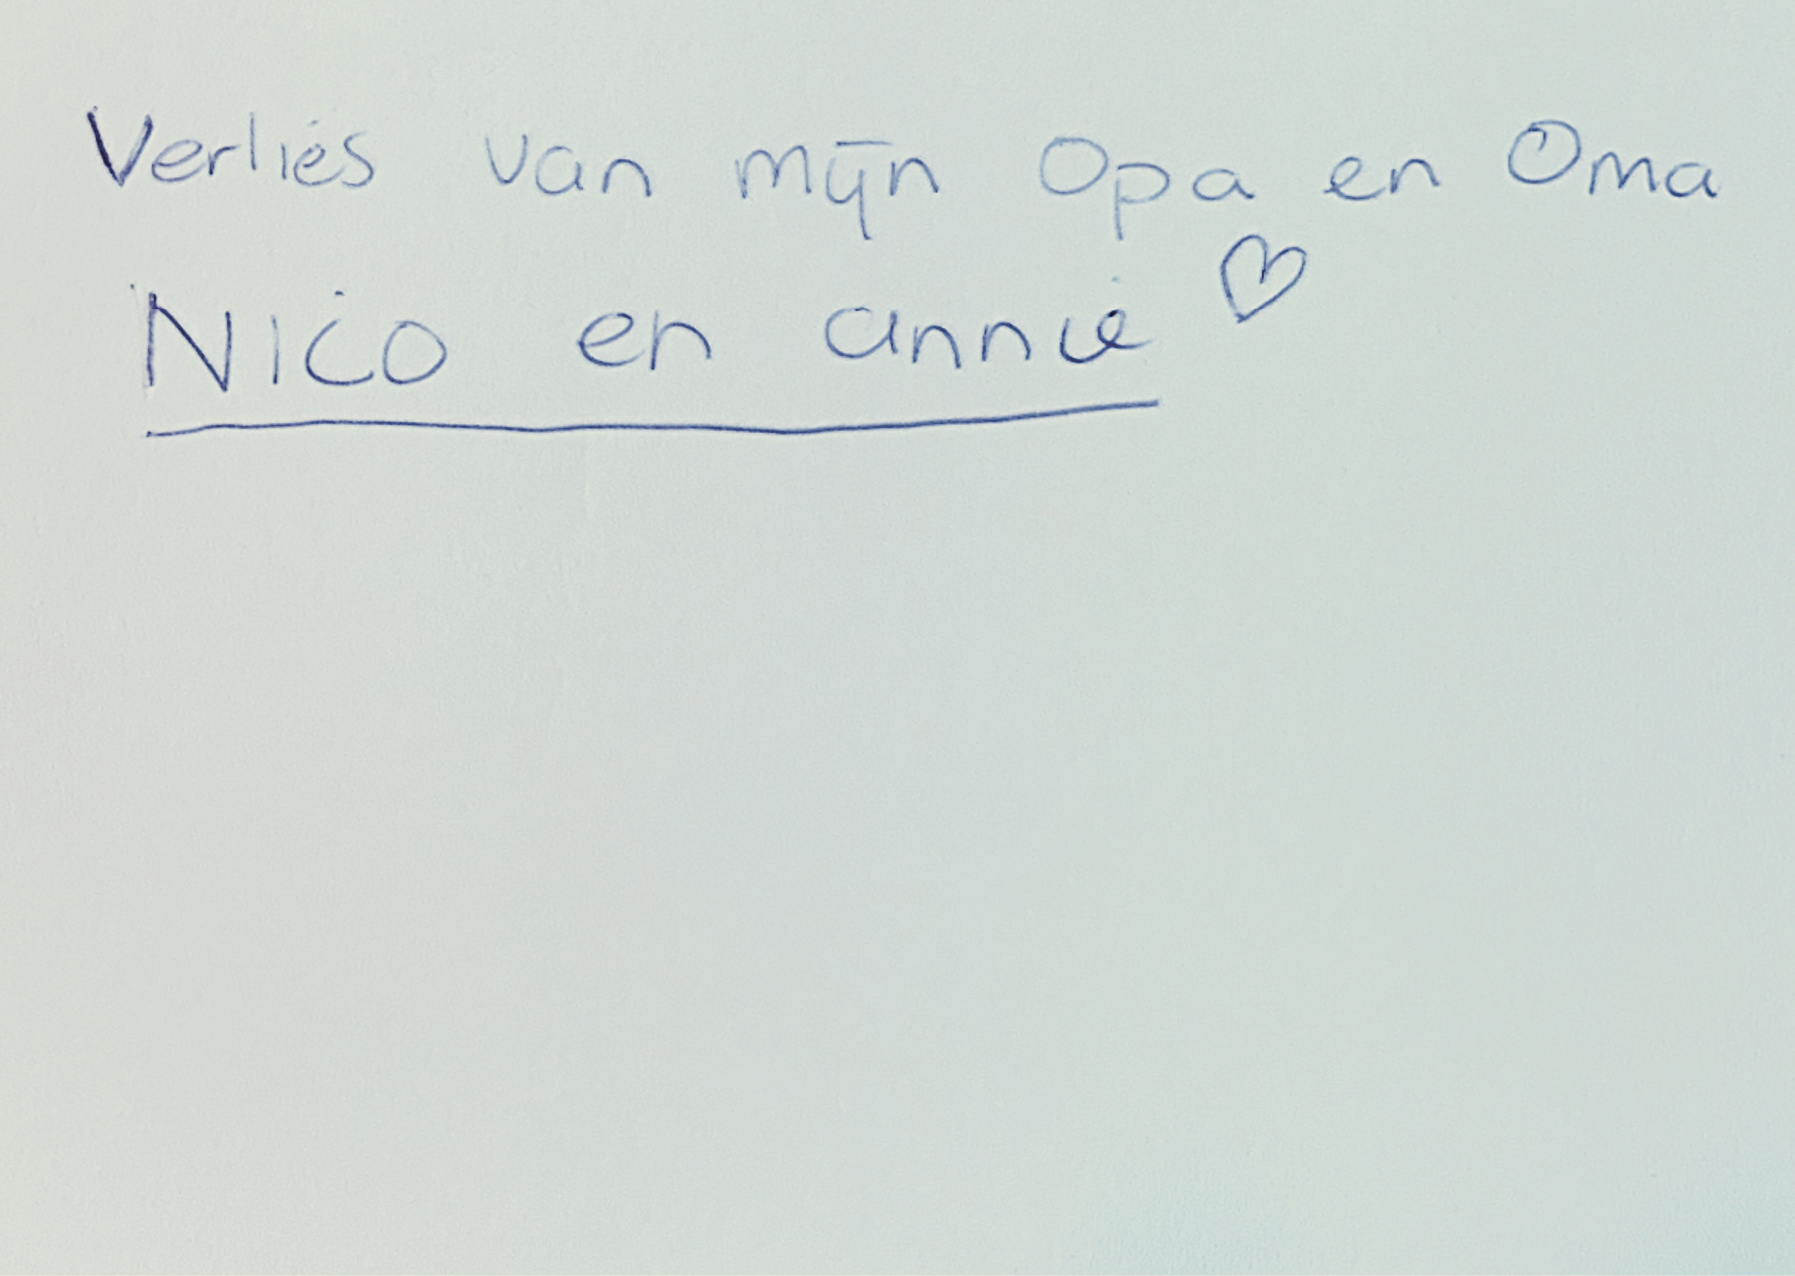 Verlies van mijn Opa en Oma
Nico en annie ♡